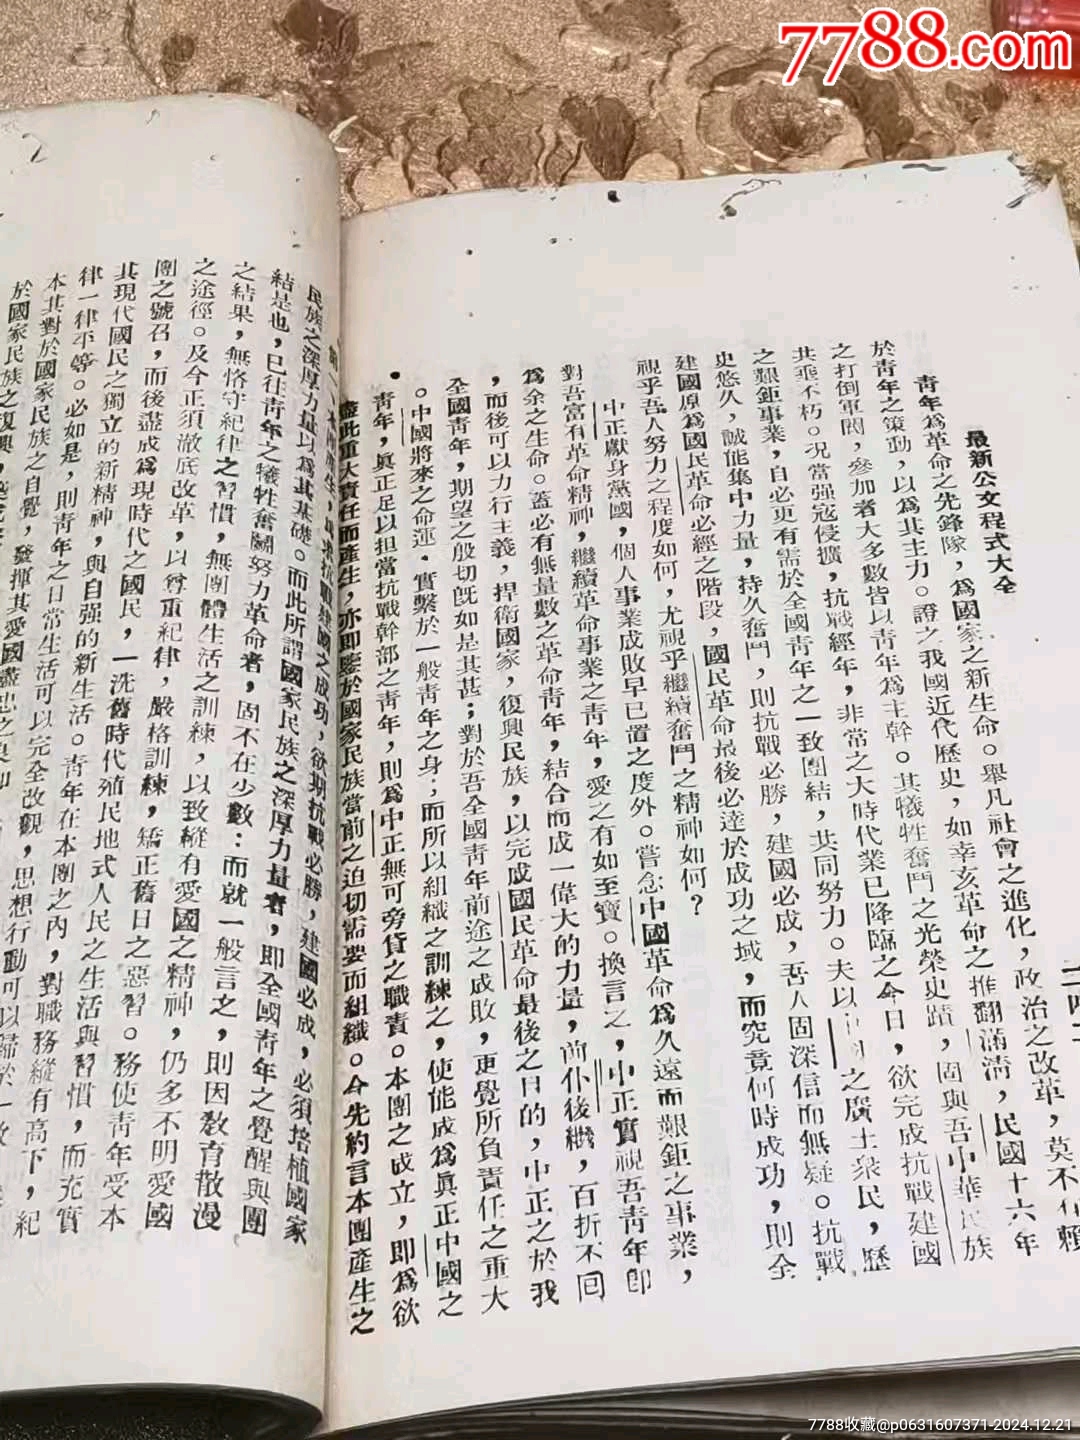 7788.com
最新公文程式大全
青年為革命之先鋒隊，為國家之新生命。舉凡社會之進化，政治之改革，莫不
賴於青年之策動，以為其主力。證之我國近代歷史，如辛亥革命之推翻滿清，民國十六年
之打倒軍閥，參加者大多數皆以青年為主幹。其犧牲奮鬥之光榮史蹟，固與吾中華民族
共垂不朽。況當强寇侵擴，抗戰經年，非常之大時代業已降臨之今日，欲完成抗戰建國
之艱鉅事業，自必更有需於全國青年之一致團結，共同努力。夫以 之廣土衆民，歷
史悠久，誠能集中力量，持久奮鬥，則抗戰必勝，建國必成，吾人固深信而無疑。抗戰
建國原為國民革命必經之階段，國民革命最後必達於成功之域，而究竟何時成功，則全
視乎吾人努力之程度如何，尤視乎繼續奮鬥之精神如何？
中正獻身黨國，個人事業成敗早已置之度外。嘗念中國革命為久遠而艱鉅之事業，
對吾富有革命精神，繼續革命事業之青年，愛之有如至寶。換言之，中正實視吾青年即
為余之生命。蓋必有無量數之革命青年，結合而成一偉大的力量，前仆後繼，百折不回
，而後可以力行主義，捍衛國家，復興民族，以完成國民革命最後之目的，中正之於我
全國青年，期望之殷切既如是其甚；對於吾全國青年前途之成敗，更覺所負責任之重大
。中國將來之命運，實繫於一般青年之身；而所以組織之訓練之，使能成為真正中國之
青年，真正足以担當抗戰幹部之青年，則為中正無可旁貸之職責。本團之成立，即為欲
盡此重大責任而產生，亦即鑒於國家民族當前之迫切需要而組織。今先約言本團產生之
民族之深厚力量以為其基礎。而此所謂國家民族之深厚力量者，即全國青年之覺醒與團
結是也，已往青年之犧牲奮鬬努力革命者，固不在少數：而就一般言之，則因教育散漫
之結果，無恪守紀律之習慣，無團體生活之訓練，以致縱有愛國之精神，仍多不明愛國
之途徑。及今正須澈底改革，以尊重紀律，嚴格訓練，矯正舊日之惡習。務使青年受本
團之號召，而後盡成為現時代之國民，一洗舊時代殖民地式人民之生活與習慣，而充實
其現代國民之獨立的新精神，與自强的新生活。青年在本團之內，對職務縱有高下，紀
律一律平等。必如是，則青年之日常生活可以完全改觀，思想行動可以歸於一致
本其對於國家民族之自覺，發揮其愛國盡忠之良知
於國家民族之復興
7788收藏@p0631607371-2024.12.21